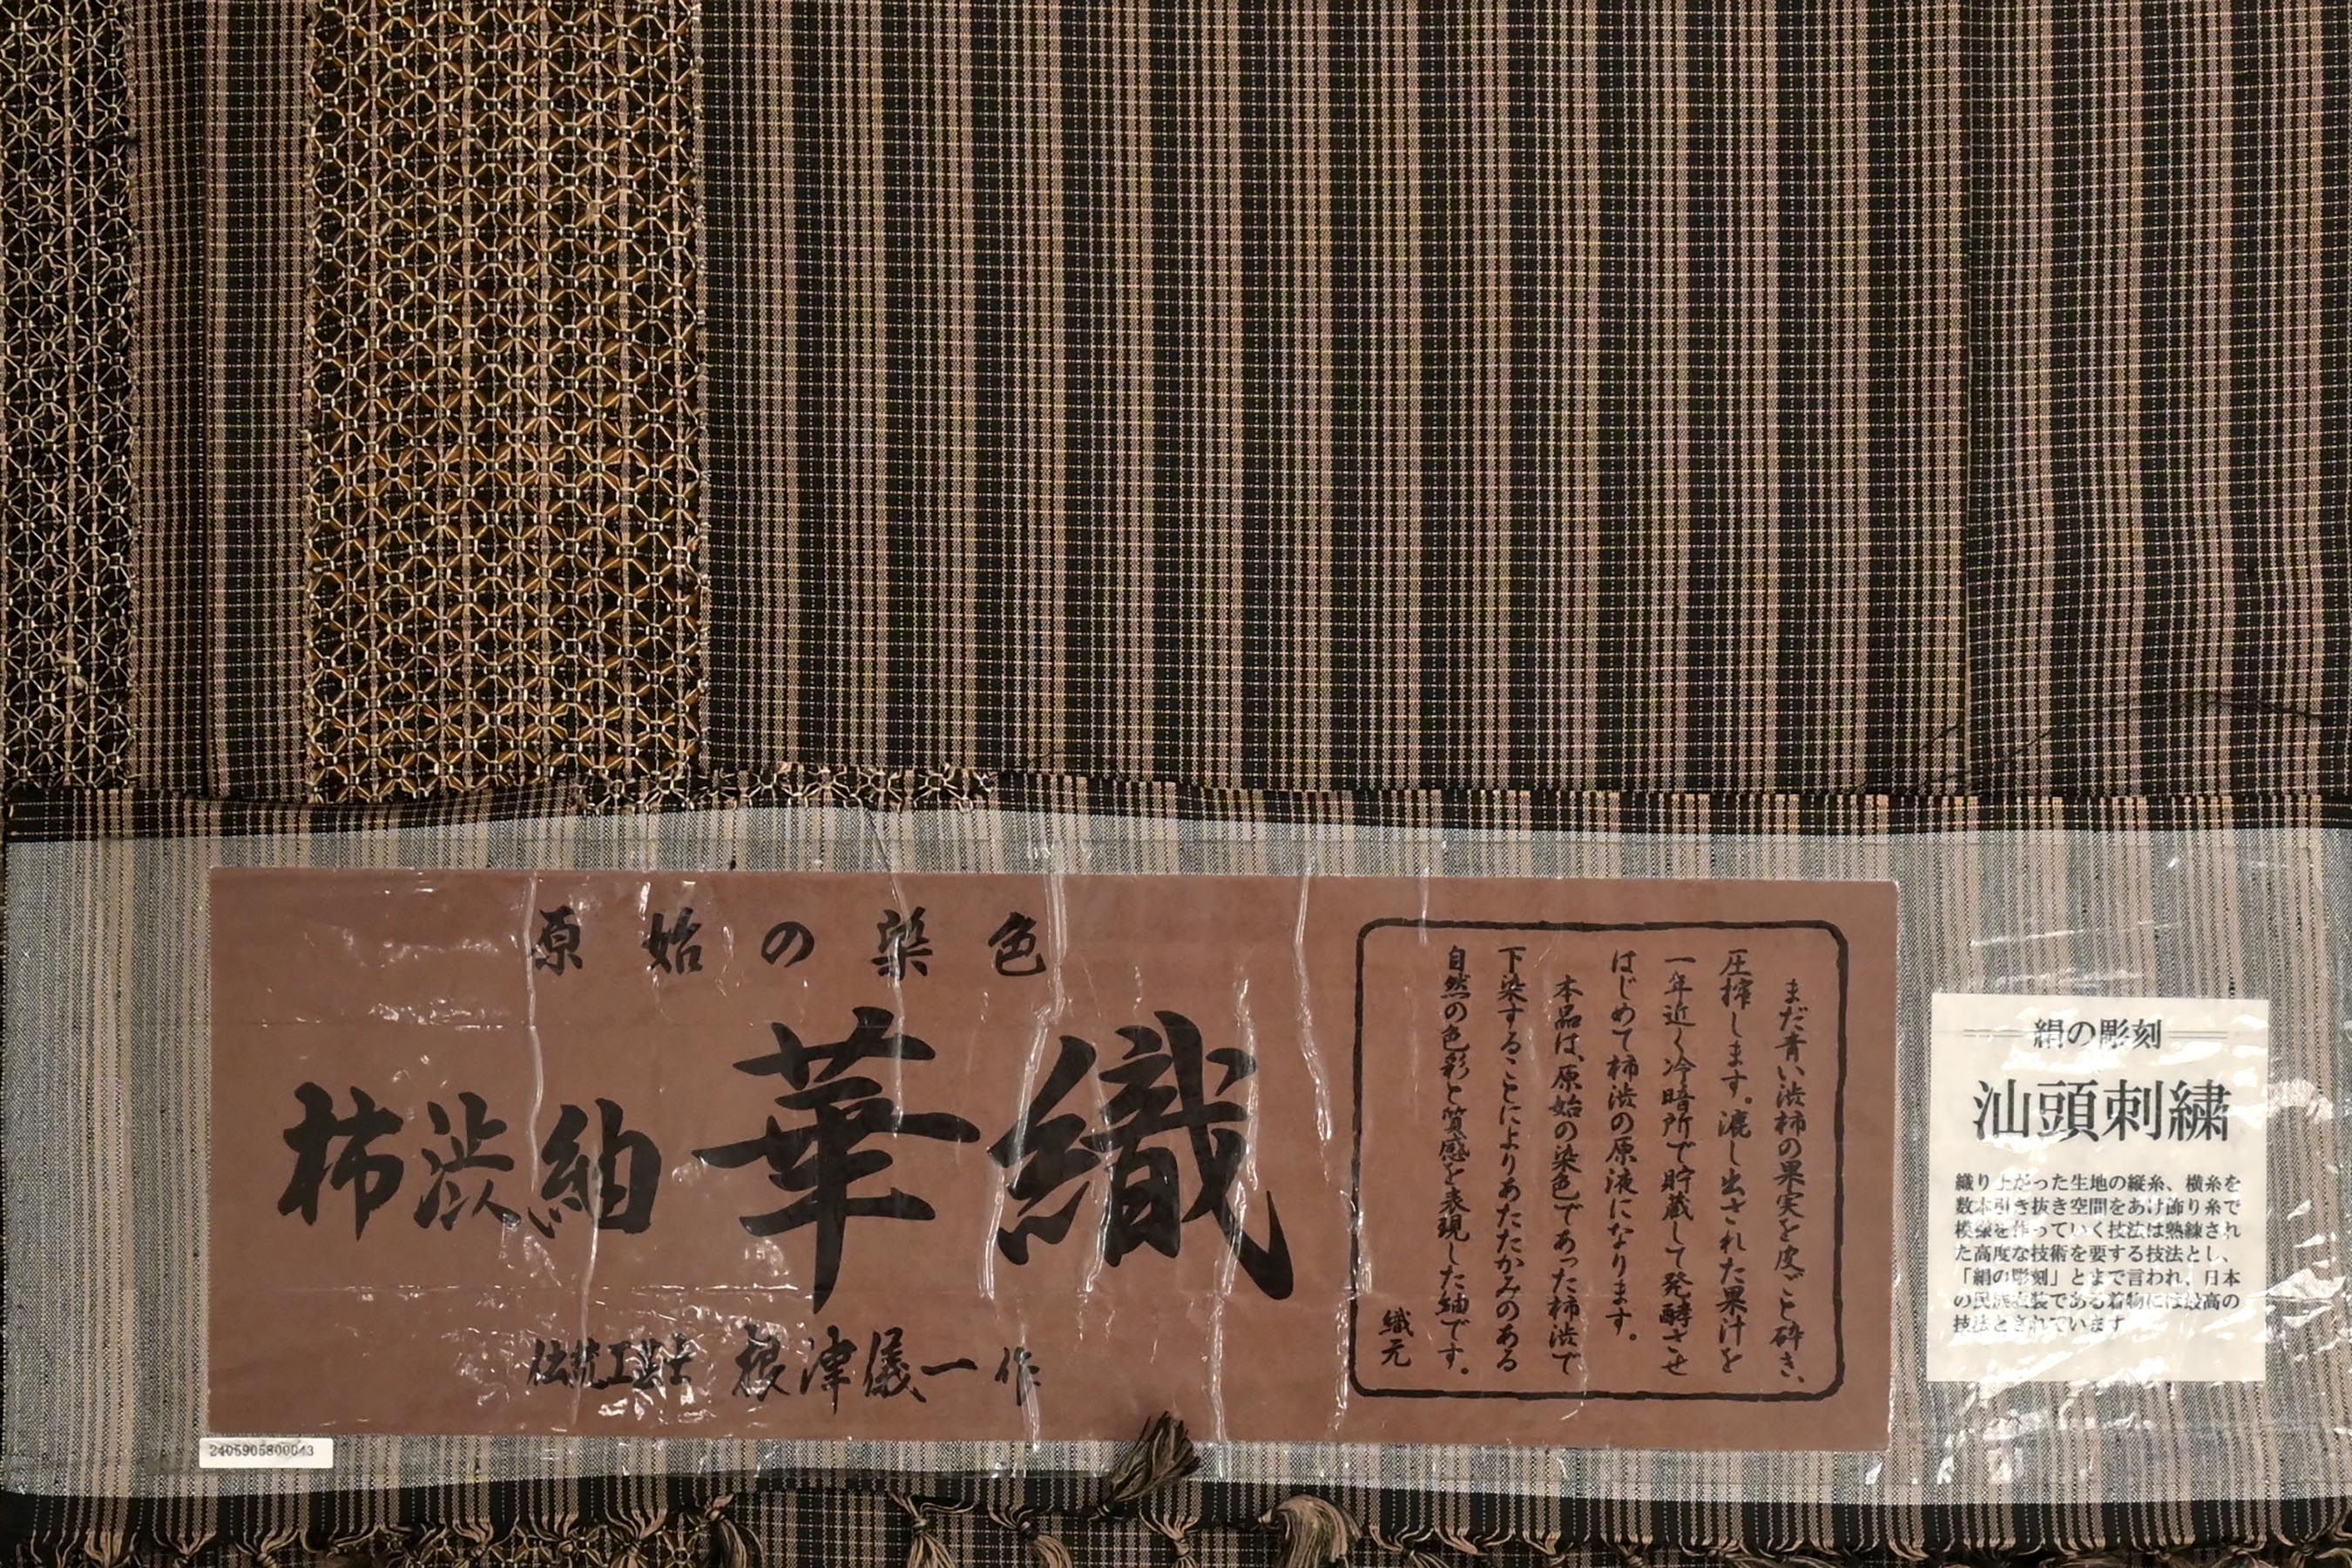 原始の染色
柿渋紬 華織
伝統工芸士 根津儀一作
まだ青い渋柿の果実を皮ごと砕き、
圧搾します。漉し出された果汁を
一年近く冷暗所で貯蔵して発酵させ
はじめて柿渋の原液になります。
本品は、原始の染色であった柿渋で
下染することによりあたたかみのある
自然の色彩と質感を表現した紬です。
織元
絹の彫刻
汕頭刺繍
織り上がった生地の縦糸、横糸を
数本引き抜き空間をあけ飾り糸で
模様を作っていく技法は熟練され
た高度な技術を要する技法とし、
「絹の彫刻」とまで言われ、日本
の民族衣装である着物には最高の
技法とされています
2405905800043